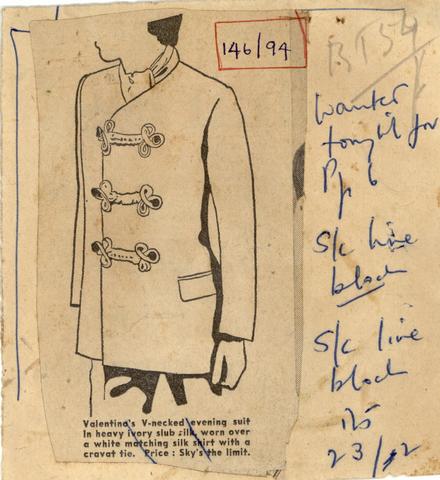 146/94
BT54
Wanted
tonight for
Pp 6
S/c line
block
S/c line
block
23/12
Valentino's V-necked evening suit
In heavy ivory slub silk, worn over
a white matching silk shirt with a
cravat tie. Price : Sky's the limit.